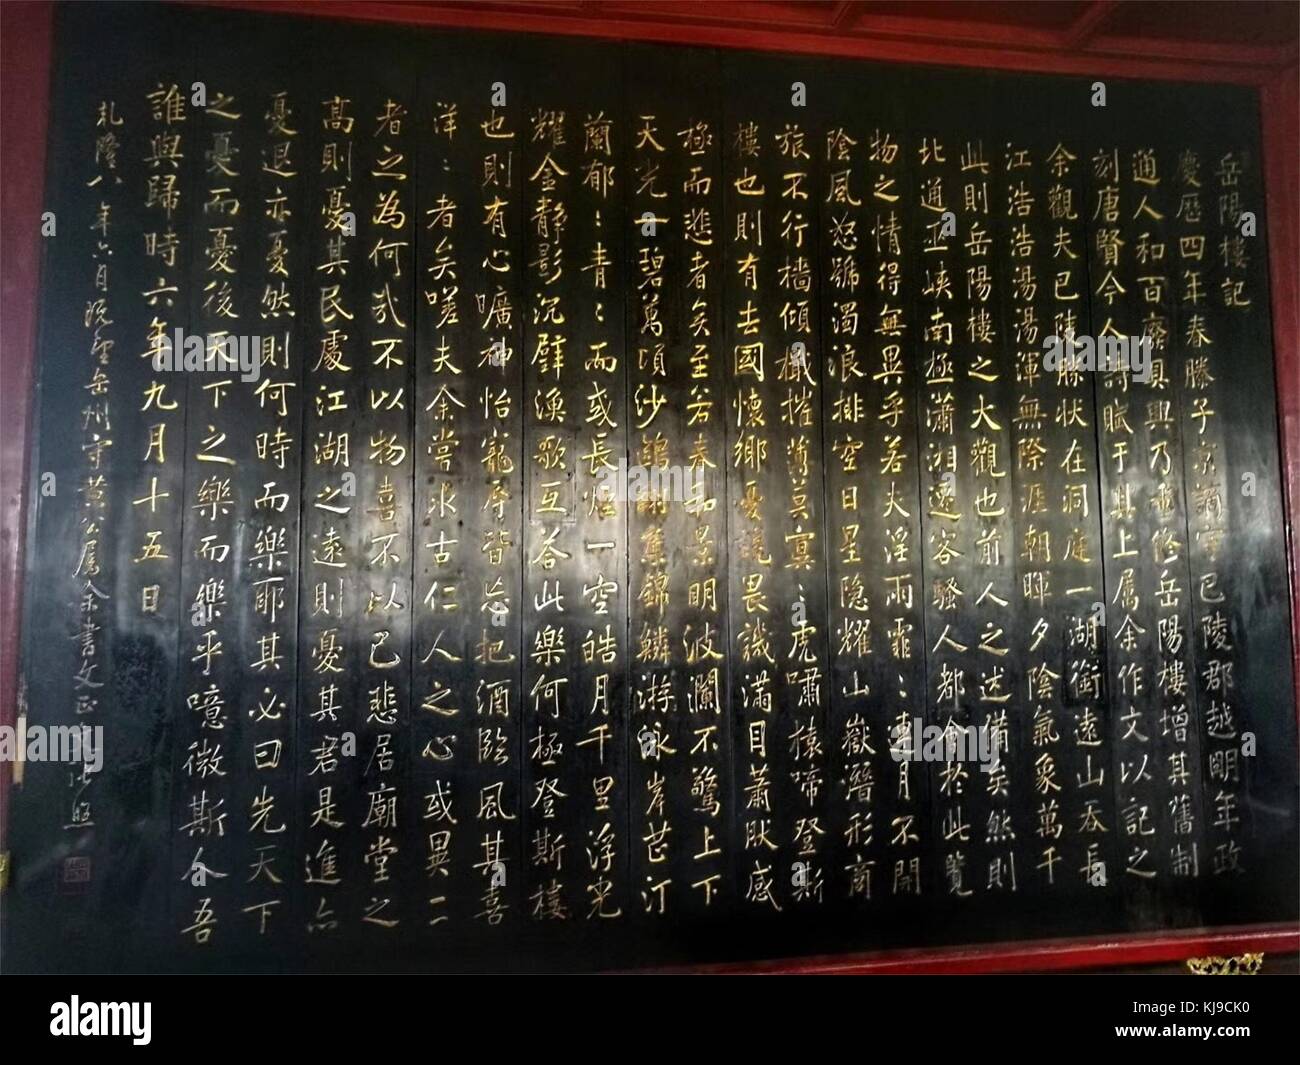 岳陽樓記
慶歷四年春滕子京謫守巴陵郡越明年政
通人和百廢具興乃重修岳陽樓增其舊制
刻唐賢今人詩賦于其上属余作文以記之
余觀夫巴陵勝状在洞庭一湖銜遠山吞長
江浩浩湯湯渾無際涯朝暉夕陰氣象萬千
此則岳陽樓之大觀也前人之述備矣然則
北通巫峽南極瀟湘遷客騷人都會於此覽
物之情得無異乎若夫淫雨霏〻連月不開
陰風怒號濁浪排空日星隱耀山嶽潛形商
旅不行檣傾檝摧薄莫冥〻虎嘯猿啼登斯
樓也則有去國懷鄉憂讒畏譏滿目蕭肰感
極而悲者矣至若春和景明波瀾不驚上下
天光一碧萬頃沙鷗翔集錦鱗游泳岸芷汀
蘭郁〻青〻而或長煙一空皓月千里浮光
耀金靜影沉壁漁歌互答此樂何極登斯樓
也則有心曠神怡寵辱皆忘把酒臨風其喜
洋〻者矣嗟夫余嘗求古仁人之心或異二
者之為何哉不以物喜不以己悲居廟堂之
高則憂其民處江湖之遠則憂其君是進亦
憂退亦憂然則何時而樂耶其必曰先天下
之憂而憂後天下之樂而樂乎噫微斯人吾
誰與歸時六年九月十五日
乾隆八年六月既望岳州守黄公属余書文正 張照
alamy stock photo
KJ9CK0
www.alamy.com